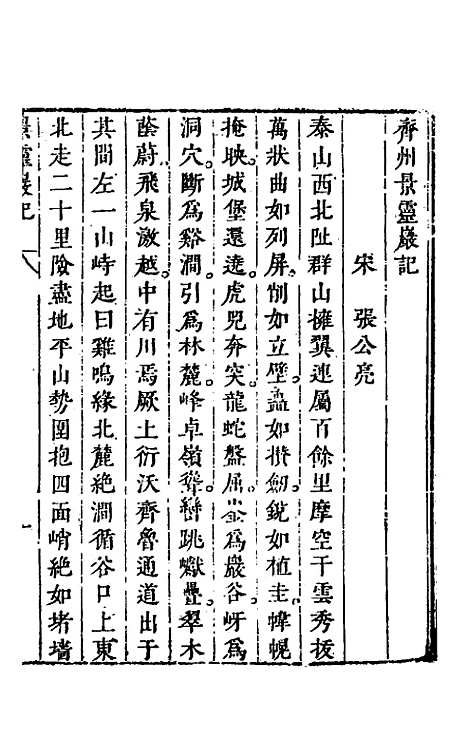 齊州景靈巖記
宋　張公亮
泰山西北趾群山擁翼連屬百餘里摩空干雲秀拔
萬狀曲如列屏。削如立壁。矗如攢劍。銳如植圭。幃幌
掩映。城堡還遶。虎兕奔突。龍蛇盤屈。崟為巖谷。岈為
洞穴。斷為谿澗。引為林麓。峰卓嶺聳。巒跳巘疊。翠木
蓊蔚。飛泉激越。中有川焉厥土衍沃齊魯通道出于
其間左一山峙起曰雞鳴緣北麓絶澗循谷口上東
北走二十里險盡地平山勢圍抱四面峭絶如堵墻
景靈巖記
一